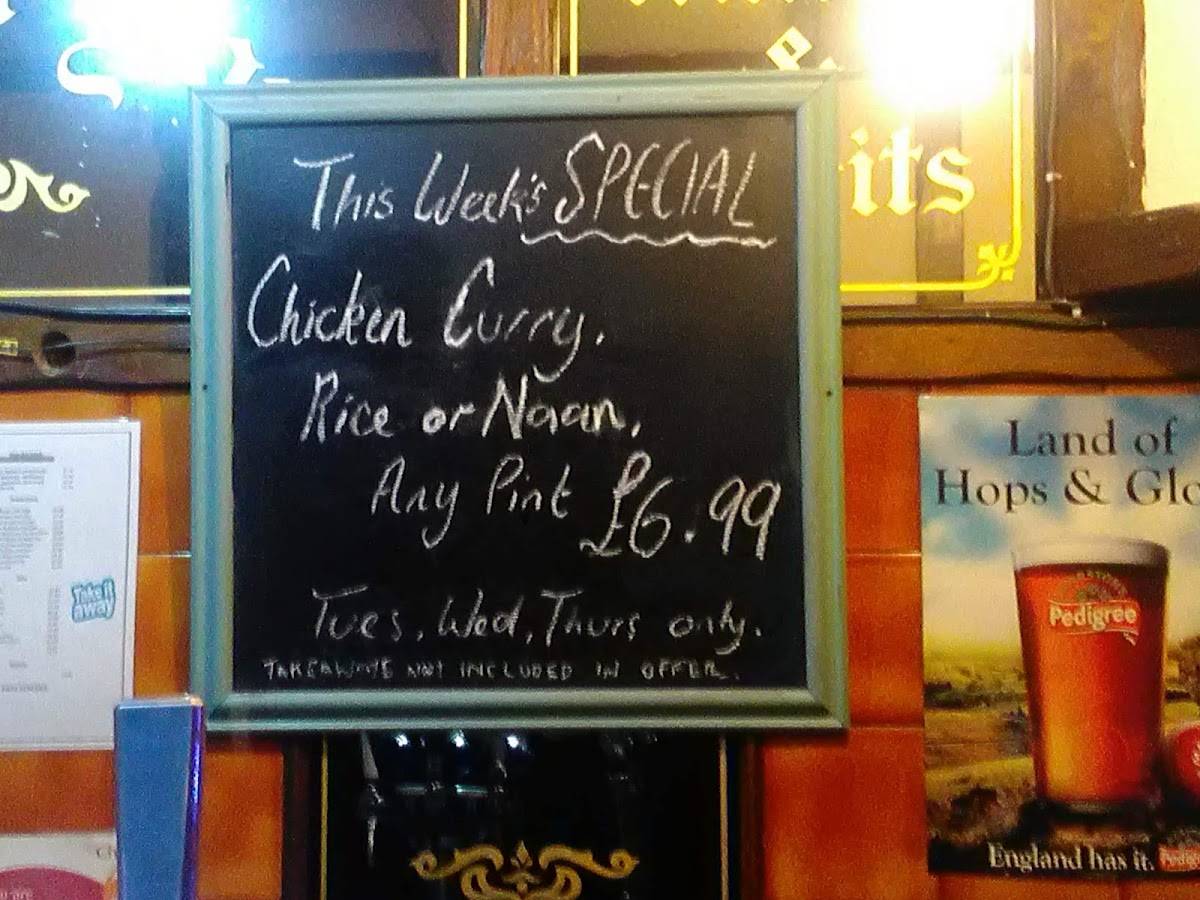 & 
its
This Week's SPECIAL
Chicken Curry.
Rice or Naan,
Any Pint £6.99
Tues, Wed, Thurs only.
TAKEAWAYS NOT INCLUDED IN OFFER.
Take it
away
Land of
Hops & Glo
Pedigree
England has it.